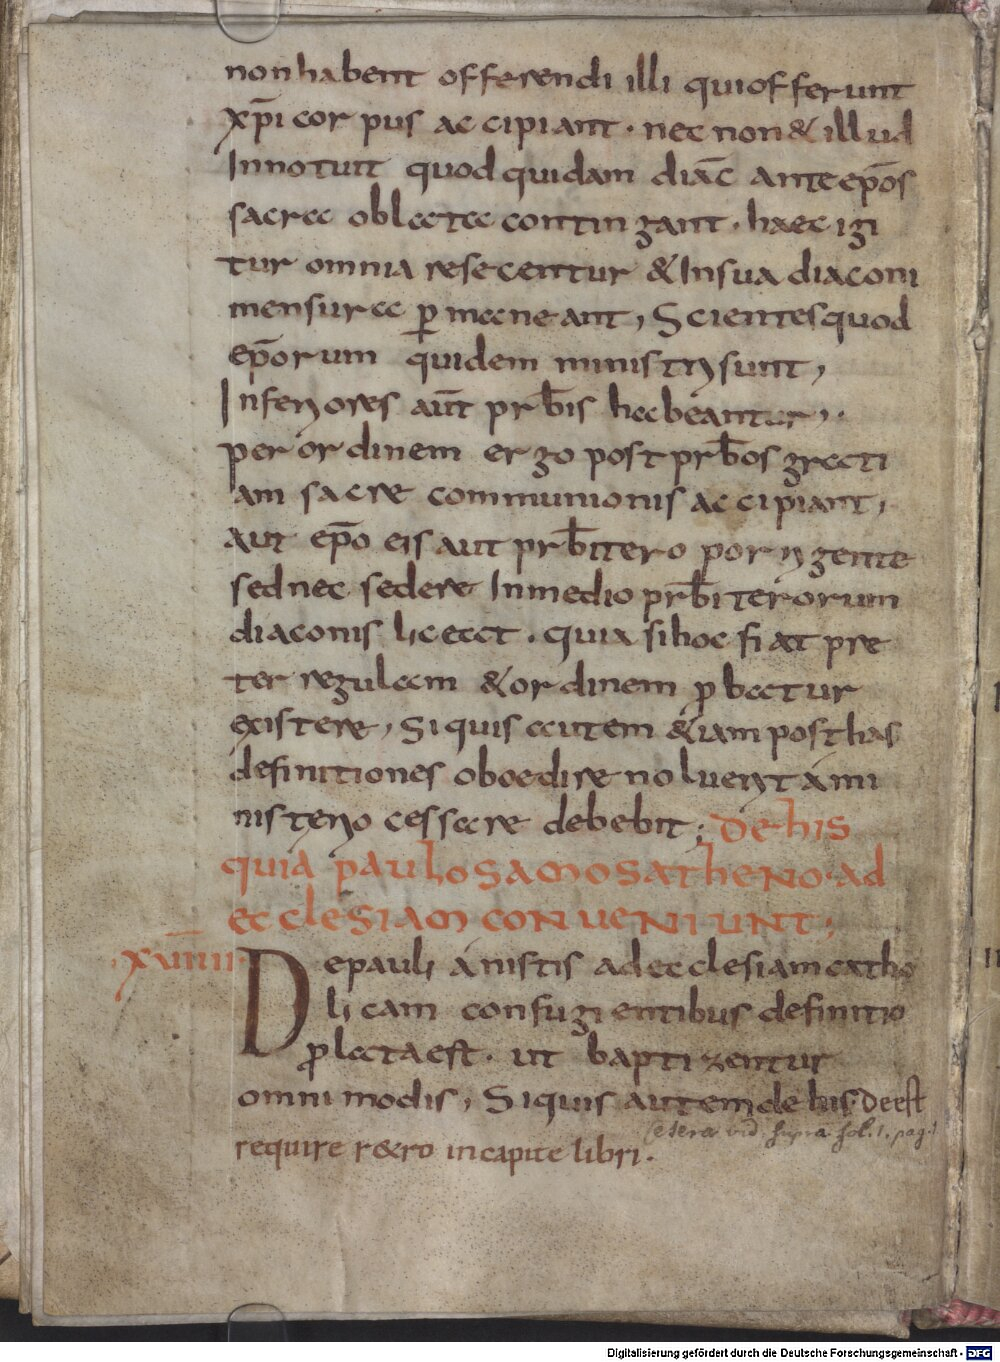 non habent offerendi illi qui offerunt
xp̄i corpus accipiant · nec non & illud
Innotuit quod quidam diac̄ ante ep̄os
sacra oblata contingant · haec igi
tur omnia resecentur & In sua diaconi
mensura p̲maneant, Scientes quod
ep̄orum quidem ministri sunt,
Inferiores aūt prb̄is habeantur,·
per ordinem ergo post prb̄os grati
am sacre communionis accipiant,
aut ep̄o eis aut prb̄itero porrigente
sed nec sedere In medio prb̄iterorum
diaconis liceat · quia si hoc fiat pre
ter regulam & ordinem ꝓbatur
existere, Siquis autem &iam post has
definitiones oboedire noluerit a mi
nisterio cessare debebit; De his
qui a paulo samosatheno · ad
ecclesiam conveniunt;
·xviiii· De paulianistis ad ecclesiam catho
licam confugientibus definitio
ꝓlata est · ut baptizentur
omnimodis, Siquis autem de his deest
Cetera vid. supra fol. 1. pag. 1
require retro in capite libri.
Digitalisierung gefördert durch die Deutsche Forschungsgemeinschaft - DFG